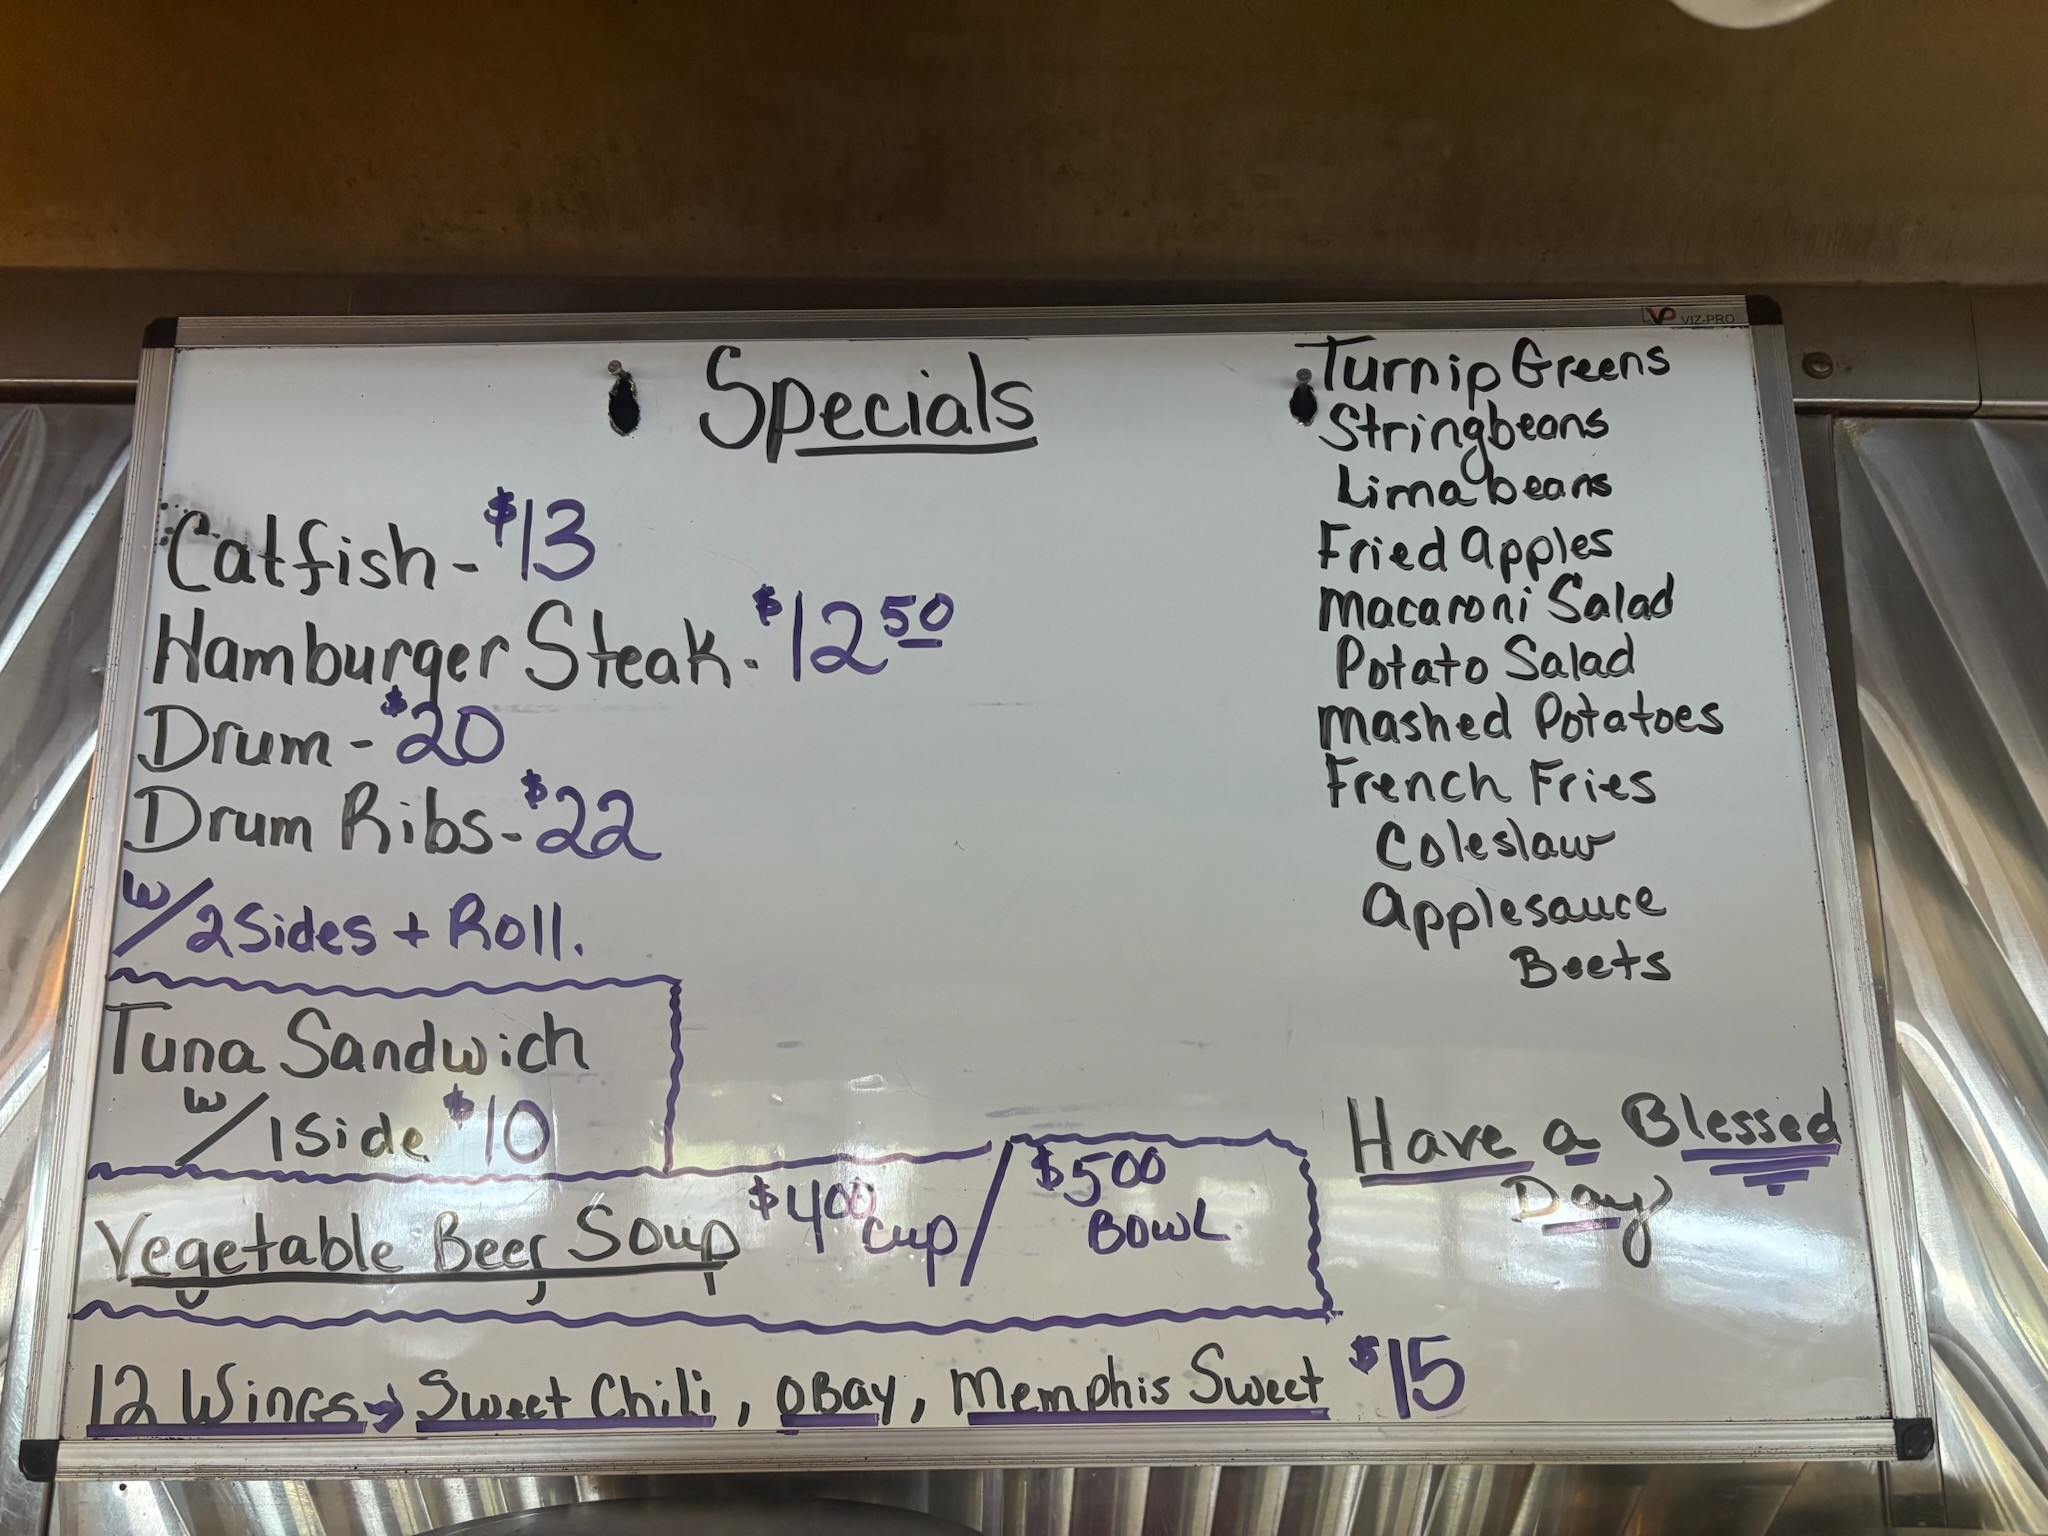 VP VIZ-PRO
Specials
Catfish - $13
Hamburger Steak - $12 50
Drum - $20
Drum Ribs - $22
w/ 2 Sides + Roll.
Tuna Sandwich
w/ 1 Side $10
Vegetable Beef Soup $4 00 cup / $5 00 BOWL
12 Wings → Sweet Chili, OBAY, Memphis Sweet $15
Turnip Greens
Stringbeans
Lima beans
Fried apples
Macaroni Salad
Potato Salad
Mashed Potatoes
French Fries
Coleslaw
Applesauce
Beets
Have a Blessed
Day